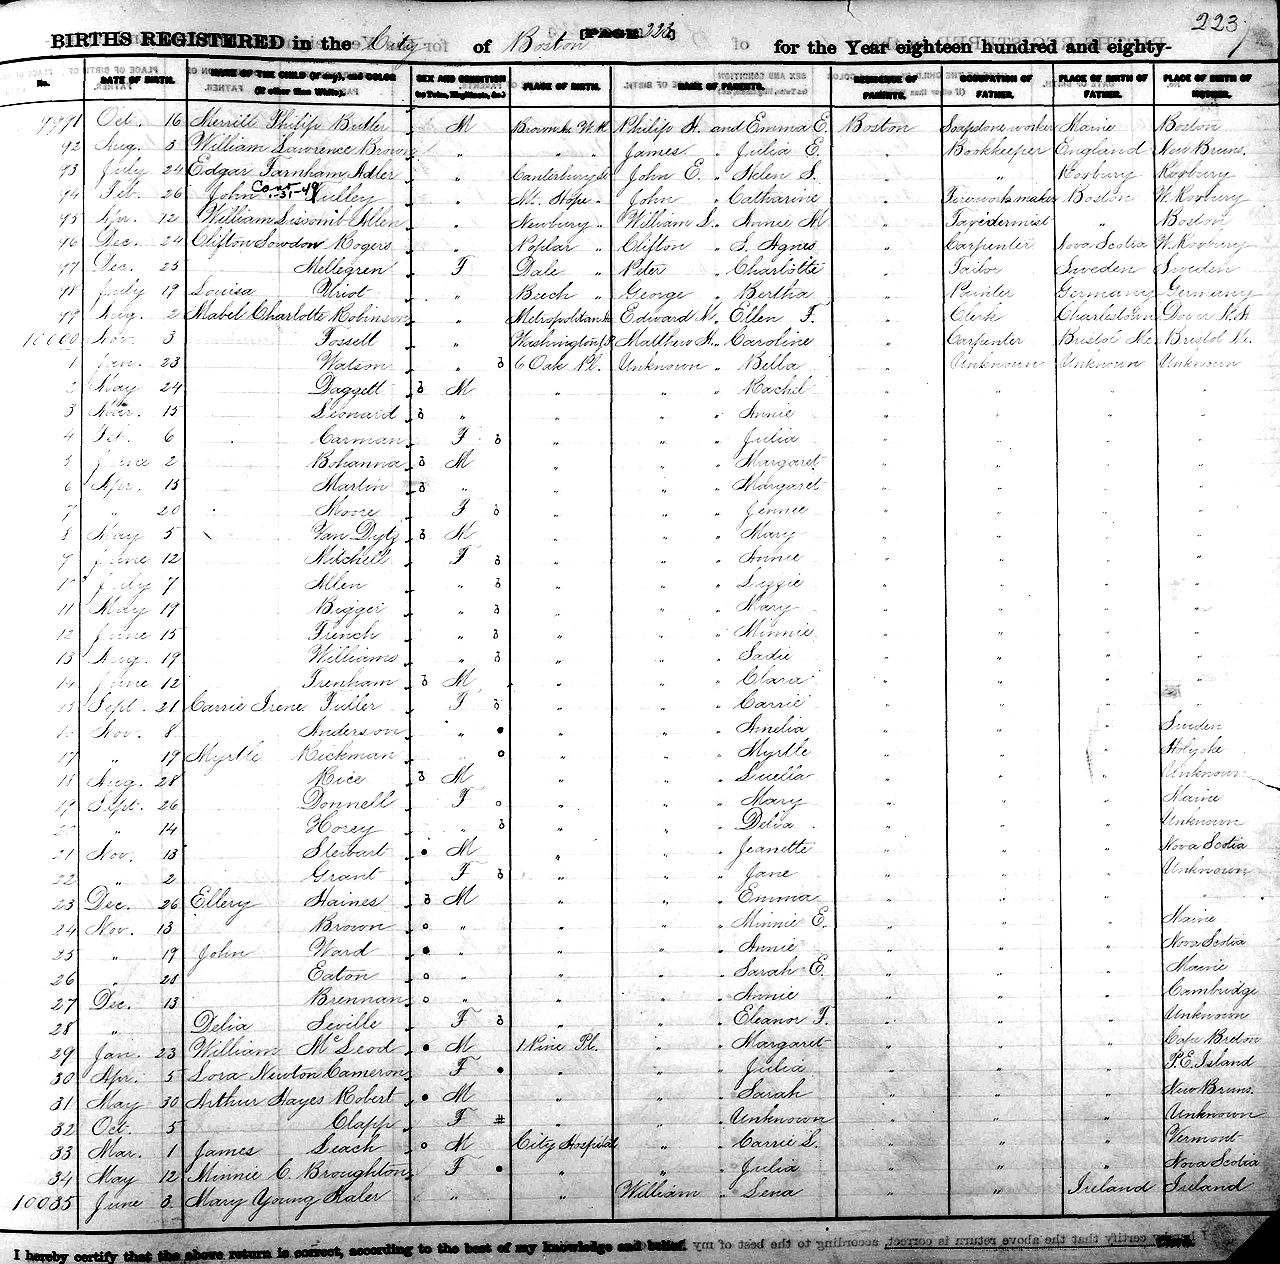 223
(PAGE 223)
BIRTHS REGISTERED in the City of Boston for the Year eighteen hundred and eighty-
No. DATE OF BIRTH. NAME OF THE CHILD (if any), and COLOR (if other than White). SEX AND CONDITION (as Twins, Illegitimate, &c.) PLACE OF BIRTH. NAME OF PARENTS. RESIDENCE OF PARENTS. OCCUPATION OF FATHER. PLACE OF BIRTH OF FATHER. PLACE OF BIRTH OF MOTHER.
9991 Oct. 16 Merrill Philip Butler M Brown Av W.R. Philip H. and Emma E. Boston Soapstone worker Maine Boston
92 Aug. 3 William Lawrence Brown " " " James " Julia E. " Bookkeeper England New Bruns.
93 July 24 Edgar Farnham Adler " Canterbury St John E. " Helen S. " " Roxbury Roxbury
Corr 1-31-49
94 Feb. 26 John Tulley " Mt. Hope " John " Catharine " Fireworks maker Boston W. Roxbury
95 Apr. 12 William Liscomb Allen " Newbury " William S. " Annie M. " Taxidermist " Boston
96 Dec. 24 Clifton Sowdon Rogers " Poplar " Clifton " S. Agnes " Carpenter Nova Scotia W. Roxbury
97 Dec. 25 Mellegren F Dale " Peter " Charlotte " Tailor Sweden Sweden
98 July 19 Louisa Uriot " Beech " George " Bertha " Painter Germany Germany
99 Aug. 2 Mabel Charlotte Robinson " Metropolitan Av Edward M. " Ellen F. " Clerk Charlestown Dover N.H
10000 Nov. 3 Fossett " Washington St Matthew H. " Caroline " Carpenter Bristol Me. Bristol Me.
1 Jan. 23 Watson " 6 Oak Pl. Unknown " Bella " Unknown Unknown Unknown
2 May 24 Daggett M " " " Rachel " " " "
3 Mar. 15 Leonard " " " " Annie " " " "
4 Feb. 6 Carman F " " " Julia " " " "
5 June 2 Bohanna M " " " Margaret " " " "
6 Apr. 15 Martin " " " " Margaret " " " "
7 " 20 Moore F " " " Jennie " " " "
8 May 5 Van Dyts M " " " Mary " " " "
9 June 12 Mitchell F " " " Annie " " " "
10 July 7 Allen " " " " Lizzie " " " "
11 May 19 Bigger " " " " Mary " " " "
12 June 15 French " " " " Minnie " " " "
13 Aug. 19 Williams " " " " Sadie " " " "
14 June 12 Trenham M " " " Clara " " " "
15 Sept. 21 Carrie Irene Fuller F " " " Carrie " " " "
16 Nov. 8 Anderson " • " " " Amelia " " " Sweden
17 " 19 Myrtle Rickman " " " " Myrtle " " " Holyoke
18 Aug. 28 Rice M " " " Luella " " " Unknown
19 Sept. 26 Donnell F " " " Mary " " " Maine
20 " 14 Horey " " " " Delia " " " Unknown
21 Nov. 13 Stewart • M " " " Jeanette " " " Nova Scotia
22 " 2 Grant F " " " Jane " " " Unknown
23 Dec. 26 Ellery Haines M " " " Emma " " " "
24 Nov. 13 Brown " " " " Minnie E. " " " Maine
25 " 19 John Ward • " " " " Annie " " " Nova Scotia
26 " 28 Eaton " " " " Sarah E. " " " Maine
27 Dec. 13 Brennan " " " " Annie " " " Cambridge
28 " Delia Seville F " " " Eleanor F. " " " Unknown
29 Jan. 23 William McLeod • M 1 Pine Pl. " " Margaret " " " Cape Breton
30 Apr. 5 Lora Newton Cameron F • " " " Julia " " " P.E. Island
31 May 30 Arthur Hayes Robert • M " " " Sarah " " " New Bruns.
32 Oct. 5 Clapp F # " " " Unknown " " " Unknown
33 Mar. 1 James Leach M City Hospital " " Carrie L. " " " Vermont
34 May 12 Minnie C. Broughton F • " " " Julia " " " Nova Scotia
10035 June 3 Mary Young Haler " " William " Lena " " Ireland Ireland
I hereby certify that the above return is correct, according to the best of my knowledge and belief.